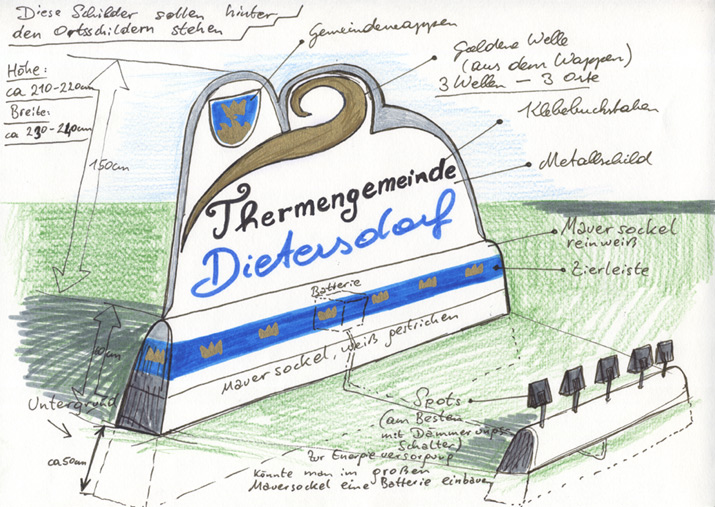 Diese Schilder sollen hinter
den Ortsschildern stehen
Gemeindewappen
Goldene Welle
(aus dem Wappen)
3 Wellen – 3 Orte
Höhe:
ca 210-220cm
Breite:
ca 230-240cm
150cm
Klebebuchstaben
Metallschild
Thermengemeinde
Dietersdorf
Mauersockel
reinweiß
Zierleiste
Batterie
Mauersockel, weiß gestrichen
Untergrund
ca. 50cm
Spots
(am Besten
mit Dämmerungs-
schalter)
Zur Energieversorgung
könnte man im großen
Mauersockel eine Batterie einbauen